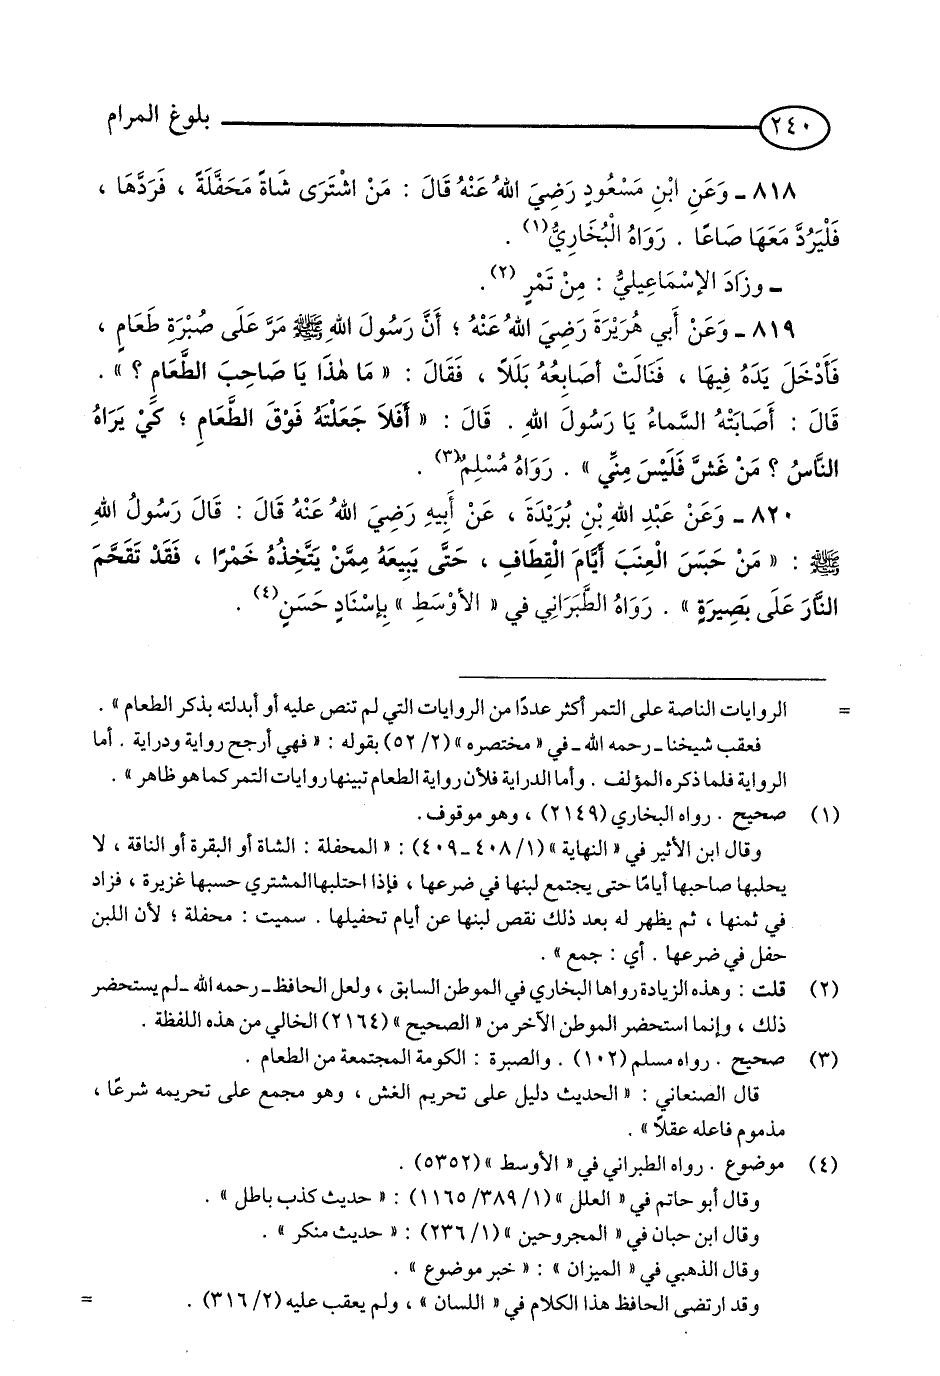 ٢٤٠ بلوغ المرام
٨١٨ ـ وَعَنِ ابْنِ مَسْعُودٍ رَضِيَ اللهُ عَنْهُ قَالَ : مَنْ اشْتَرَى شَاةً مَحَفَّلَةً ، فَرَدَّهَا ،
فَلْيَرُدَّ مَعَهَا صَاعًا . رَوَاهُ الْبُخَارِيُّ(١) .
ـ وزَادَ الإسْمَاعِيليُّ : مِنْ تَمْرٍ (٢).
٨١٩ ـ وَعَنْ أَبي هُرَيْرَةَ رَضِيَ اللهُ عَنْهُ ؛ أَنَّ رَسُولَ اللهِ ﷺ مَرَّ عَلَى صُبْرَةِ طَعَامٍ ،
فَأَدْخَلَ يَدَهُ فِيهَا ، فَنَالَتْ أصَابِعُهُ بَلَلاً ، فَقَالَ : « مَا هٰذَا يَا صَاحِبَ الطَّعَامِ ؟ » .
قَالَ : أَصَابَتْهُ السَّمَاءُ يَا رَسُولَ اللهِ . قَالَ : « أَفَلاَ جَعَلْتَهُ فَوْقَ الطَّعَامِ ؛ كَيْ يَرَاهُ
النَّاسُ ؟ مَنْ غَشَّ فَلَيْسَ مِنِّي » . رَوَاهُ مُسْلِمٌ(٣) .
٨٢٠ ـ وَعَنْ عَبْدِ اللهِ بْنِ بُرَيْدَةَ ، عَنْ أَبِيهِ رَضِيَ اللهُ عَنْهُ قَالَ : قَالَ رَسُولُ اللهِ
ﷺ : « مَنْ حَبَسَ الْعِنَبَ أَيَّامَ الْقِطَافِ ، حَتَّى يَبِيعَهُ مِمَّنْ يَتَّخِذُهُ خَمْرًا ، فَقَدْ تَقَحَّمَ
النَّارَ عَلَى بَصِيرَةٍ » . رَوَاهُ الطَّبَرَانِي في « الأوْسَطِ » بِإسْنَادٍ حَسَنٍ(٤) .
= الروايات الناصة على التمر أكثر عددًا من الروايات التي لم تنص عليه أو أبدلته بذكر الطعام » .
فعقب شيخنا ـ رحمه الله ـ في « مختصره » (٢/ ٥٢) بقوله : « فهي أرجح رواية ودراية . أما
الرواية فلما ذكره المؤلف . وأما الدراية فلأن رواية الطعام تبينها روايات التمر كما هو ظاهر » .
(١) صحيح . رواه البخاري (٢١٤٩) ، وهو موقوف.
وقال ابن الأثير في « النهاية » (١/ ٤٠٨ ـ ٤٠٩) : « المحفلة : الشاة أو البقرة أو الناقة ، لا
يحلبها صاحبها أيامًا حتى يجتمع لبنها في ضرعها ، فإذا احتلبها المشتري حسبها غزيرة ، فزاد
في ثمنها ، ثم يظهر له بعد ذلك نقص لبنها عن أيام تحفيلها . سميت : محفلة ؛ لأن اللبن
حفل في ضرعها . أي : جمع » .
(٢) قلت : وهذه الزيادة رواها البخاري في الموطن السابق ، ولعل الحافظ ـ رحمه الله ـ لم يستحضر
ذلك ، وإنما استحضر الموطن الآخر من « الصحيح » (٢١٦٤) الخالي من هذه اللفظة .
(٣) صحيح . رواه مسلم (١٠٢) . والصبرة : الكومة المجتمعة من الطعام .
قال الصنعاني : « الحديث دليل على تحريم الغش ، وهو مجمع على تحريمه شرعًا ،
مذموم فاعله عقلاً » .
(٤) موضوع . رواه الطبراني في « الأوسط » (٥٣٥٢) .
وقال أبو حاتم في « العلل » (١/ ٣٨٩/ ١١٦٥) : « حديث كذب باطل » .
وقال ابن حبان في « المجروحين » (١/ ٢٣٦) : « حديث منكر » .
وقال الذهبي في « الميزان » : « خبر موضوع » .
وقد ارتضى الحافظ هذا الكلام في « اللسان » ، ولم يعقب عليه (٢/ ٣١٦) . =